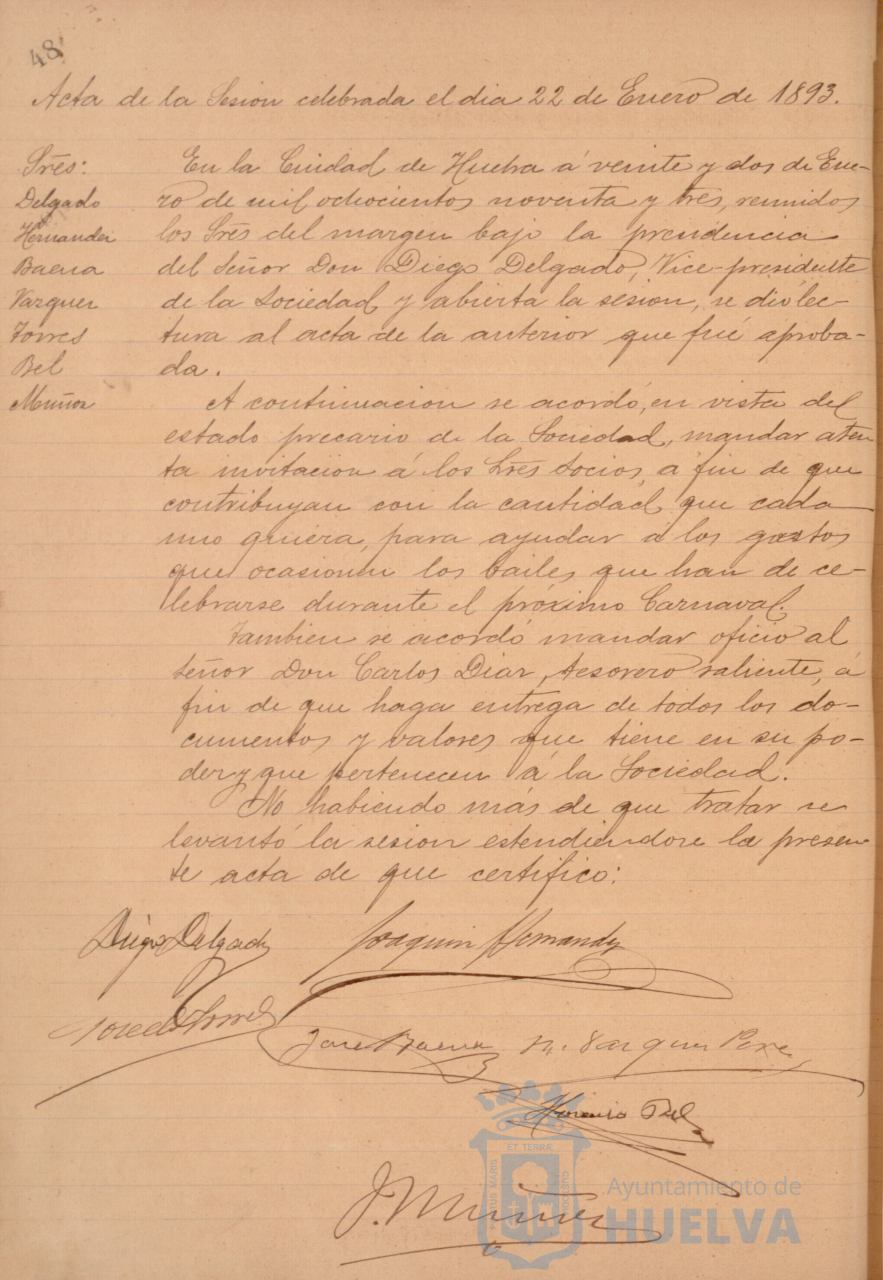 48
Acta de la Sesion celebrada el dia 22 de Enero de 1893.
Sres:
Delgado
Hernandez
Baena
Vazquez
Torres
Bel
Muñoz
En la Ciudad de Huelva á veinte y dos de Ene-
ro de mil ochocientos noventa y tres, reunidos
los Sres del margen bajo la presidencia
del Señor Don Diego Delgado, Vice-presidente
de la Sociedad y abierta la sesion, se dió lec-
tura al acta de la anterior que fué aproba-
da.
A continuacion se acordó, en vista del
estado precario de la Sociedad, mandar aten
ta invitacion á los Sres Socios, a fin de que
contribuyan con la cantidad que cada
uno quiera, para ayudar á los gastos
que ocasionen los bailes que han de ce-
lebrarse durante el próximo Carnaval.
Tambien se acordó mandar oficio al
Señor Don Carlos Diaz, tesorero saliente, á
fin de que haga entrega de todos los do-
cumentos y valores que tiene en su po-
der y que pertenecen á la Sociedad.
No habiendo más de que tratar se
levantó la sesion estendiendose la presen
te acta de que certifico:
Diego Delgado Joaquin Hernandez
Jose de Torres
Jose Baena Vazquez Perez
Bel
J. Muñoz
ET TERRÆ
PORTUS MARIS
CUSTODIA
Ayuntamiento de
HUELVA